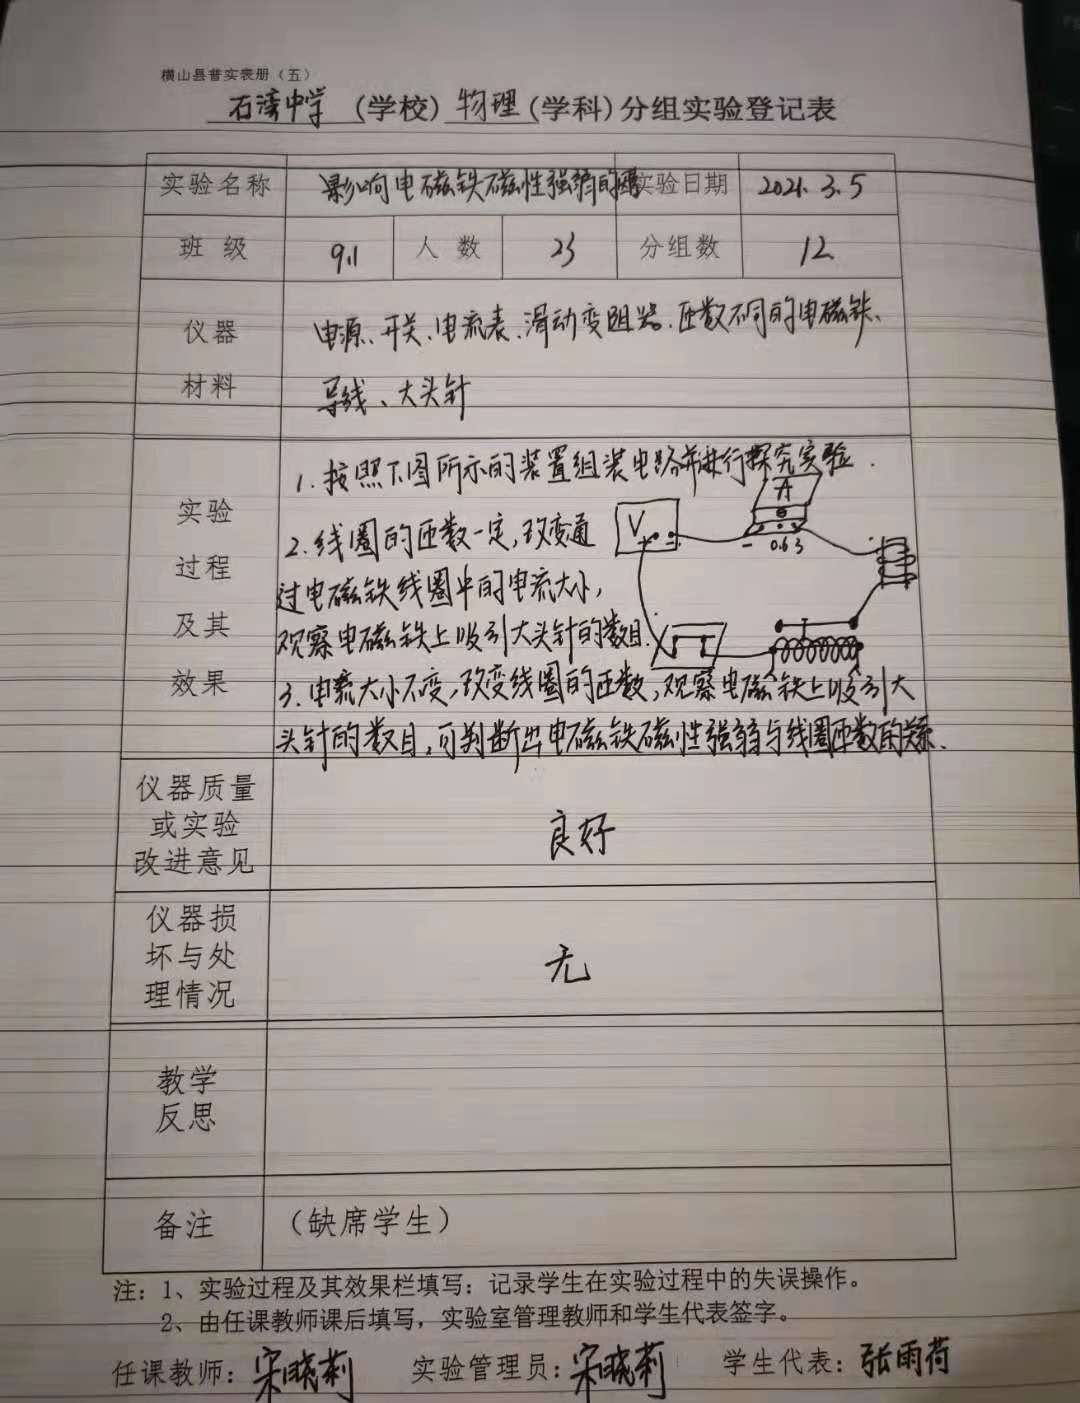 横山县普实表册（五）
石湾中学（学校）物理（学科）分组实验登记表
实验名称 影响电磁铁磁性强弱的 实验日期 2021.3.5
班级 9.1 人数 23 分组数 12
仪器 电源、开关、电流表、滑动变阻器、匝数不同的电磁铁、
材料 导线、大头针
1.按照下图所示的装置组装电路并进行探究实验.
实验
过程
及其
效果
2.线圈的匝数一定,改变通
过电磁铁线圈中的电流大小,
观察电磁铁上吸引大头针的数目.
V
A
- 0.6 3
3.电流大小不变,改变线圈的匝数,观察电磁铁上吸引大
头针的数目,可判断出电磁铁磁性强弱与线圈匝数的关系.
仪器质量
或实验
改进意见
良好
仪器损
坏与处
理情况
无
教学
反思
备注 （缺席学生）
注：1、实验过程及其效果栏填写：记录学生在实验过程中的失误操作。
2、由任课教师课后填写，实验室管理教师和学生代表签字。
任课教师：宋晓莉 实验管理员：宋晓莉 学生代表：张雨荷